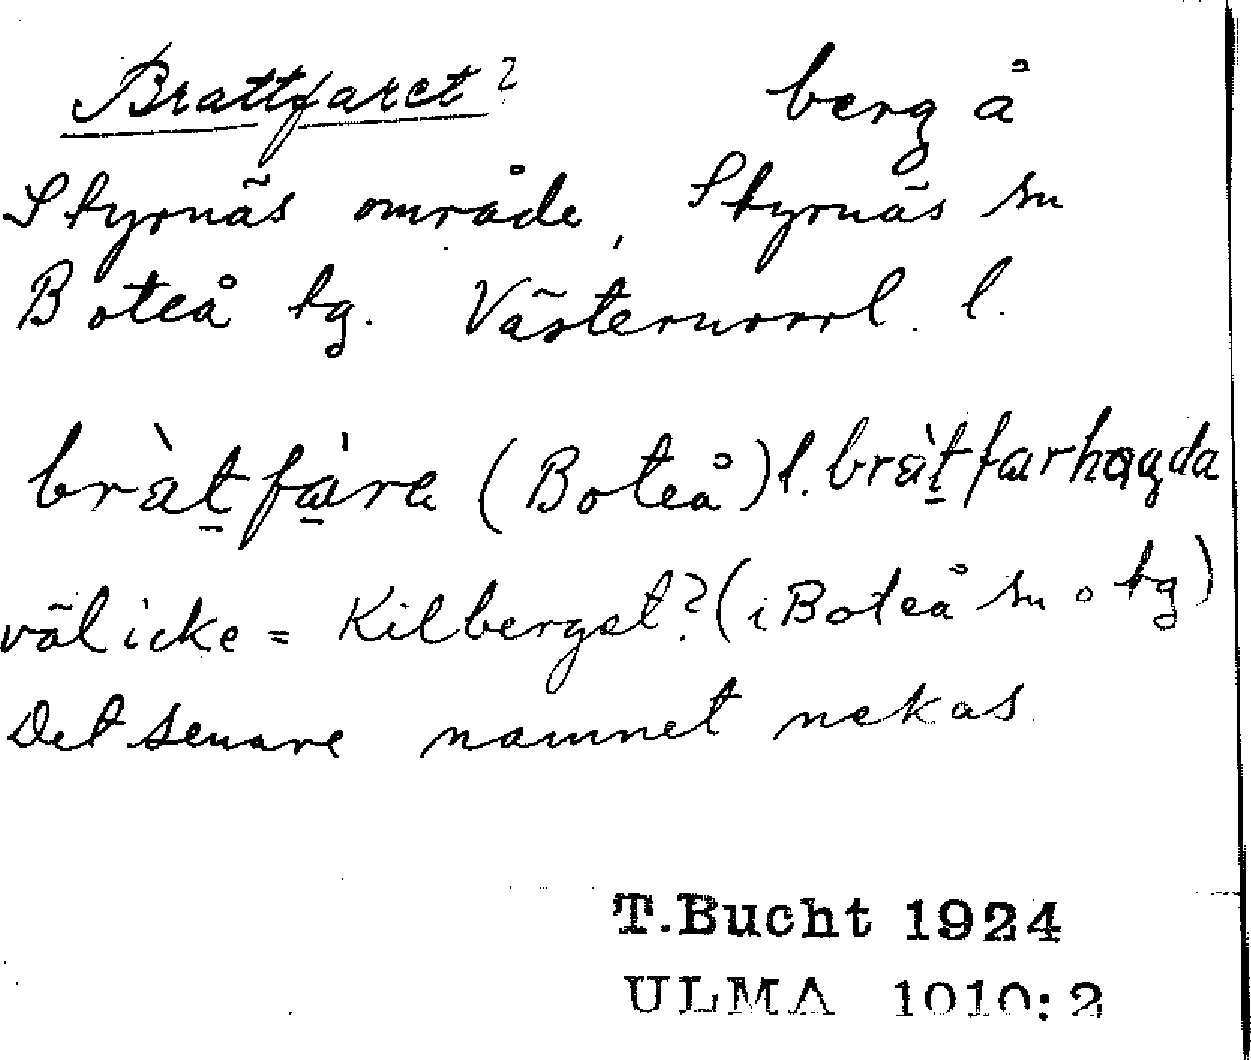 Brattfaret? berg å
Styrnäs område, Styrnäs sn
Boteå tg. Västernorrl. l.
bràt̠fa̠̍ra (Boteå) l. bràt̠farhøgda
väl icke = Kilberget? (i Boteå sn o tg)
Det senare namnet nekas
T.Bucht 1924
ULMA 1010:2